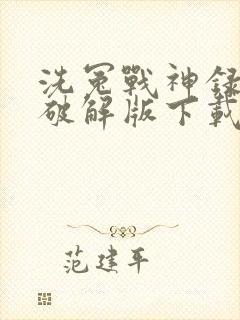 洗冤戰神録
破解版下載
范建平